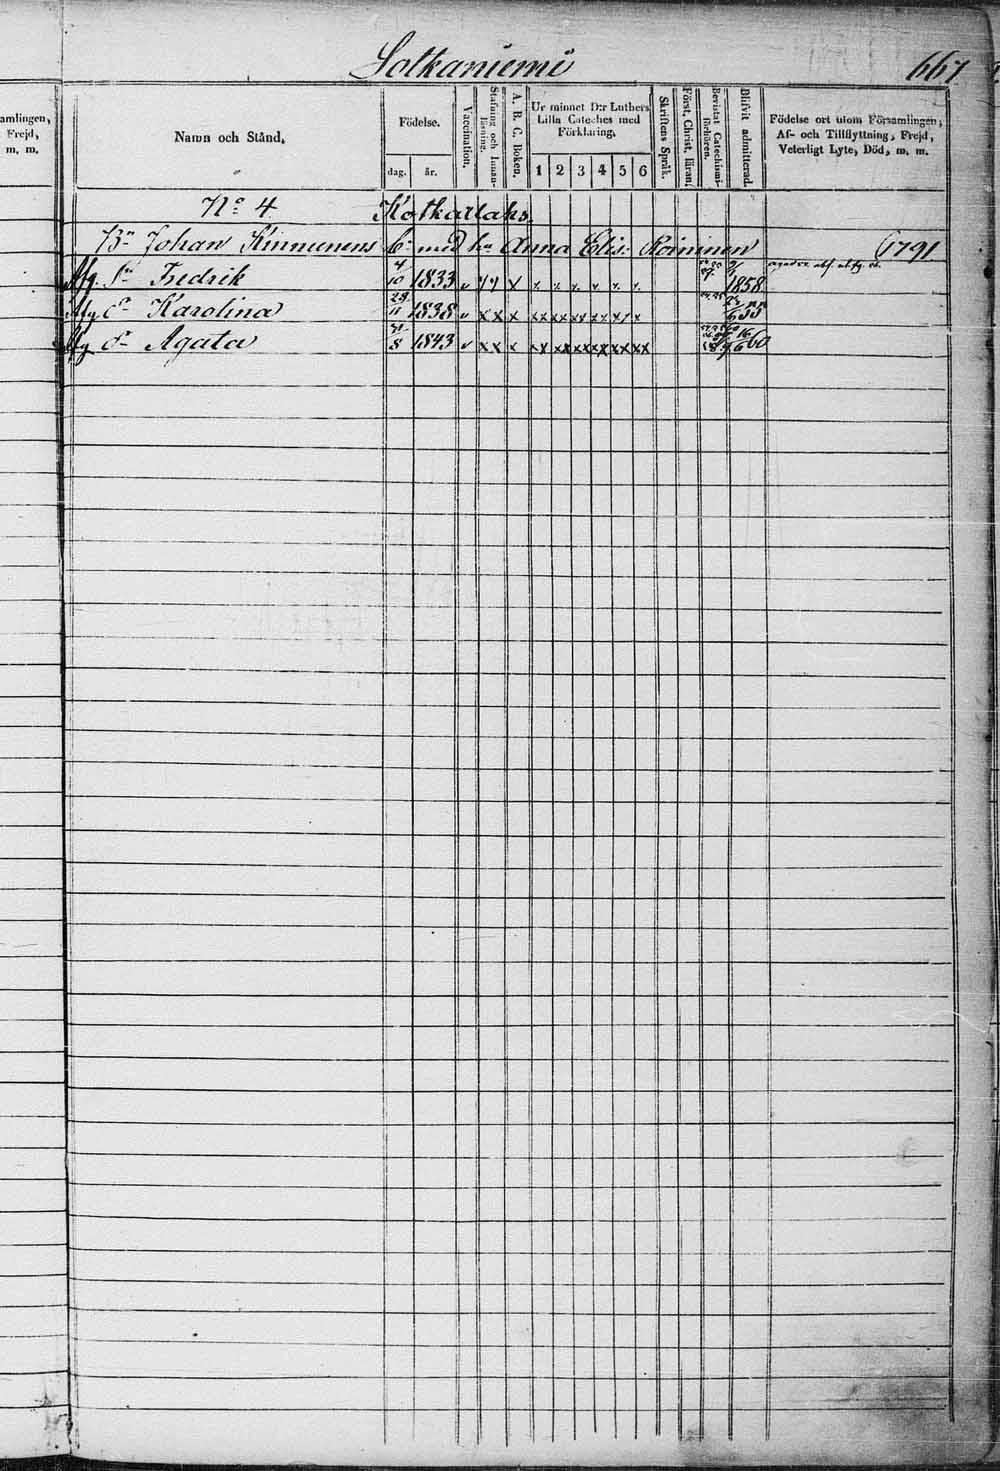 Sotkaniemi 667
amlingen,
Frejd,
m. m.
Namn och Stånd,
Födelse.
dag. år.
Vaccination.
Stafning och Innan-läsning.
A. B. C. Boken.
Ur minnet D:r Luthers Lilla Cateches med Förklaring,
1 2 3 4 5 6
Skriftens Språk.
Först. Christ. läran.
Bevistat Catechismi-förhören.
Blifvit admitterad.
Födelse ort utom Församlingen, Af- och Tillflyttning, Frejd, Veterligt Lyte, Död, m. m.
No 4 Kotkatlaks.
Bn Johan Kinnunens b: med hu Anna Elis: Roininen 1791
Afg. Sn Fredrik 4/10 1833 v x x x x x x x x 1858
Afg dr Karolina 28/11 1838 v x x x xx xx xx xx x x 55
Afg dr Agata /8 1843 v x x x xx xx xx xx xx xx 16/6 60